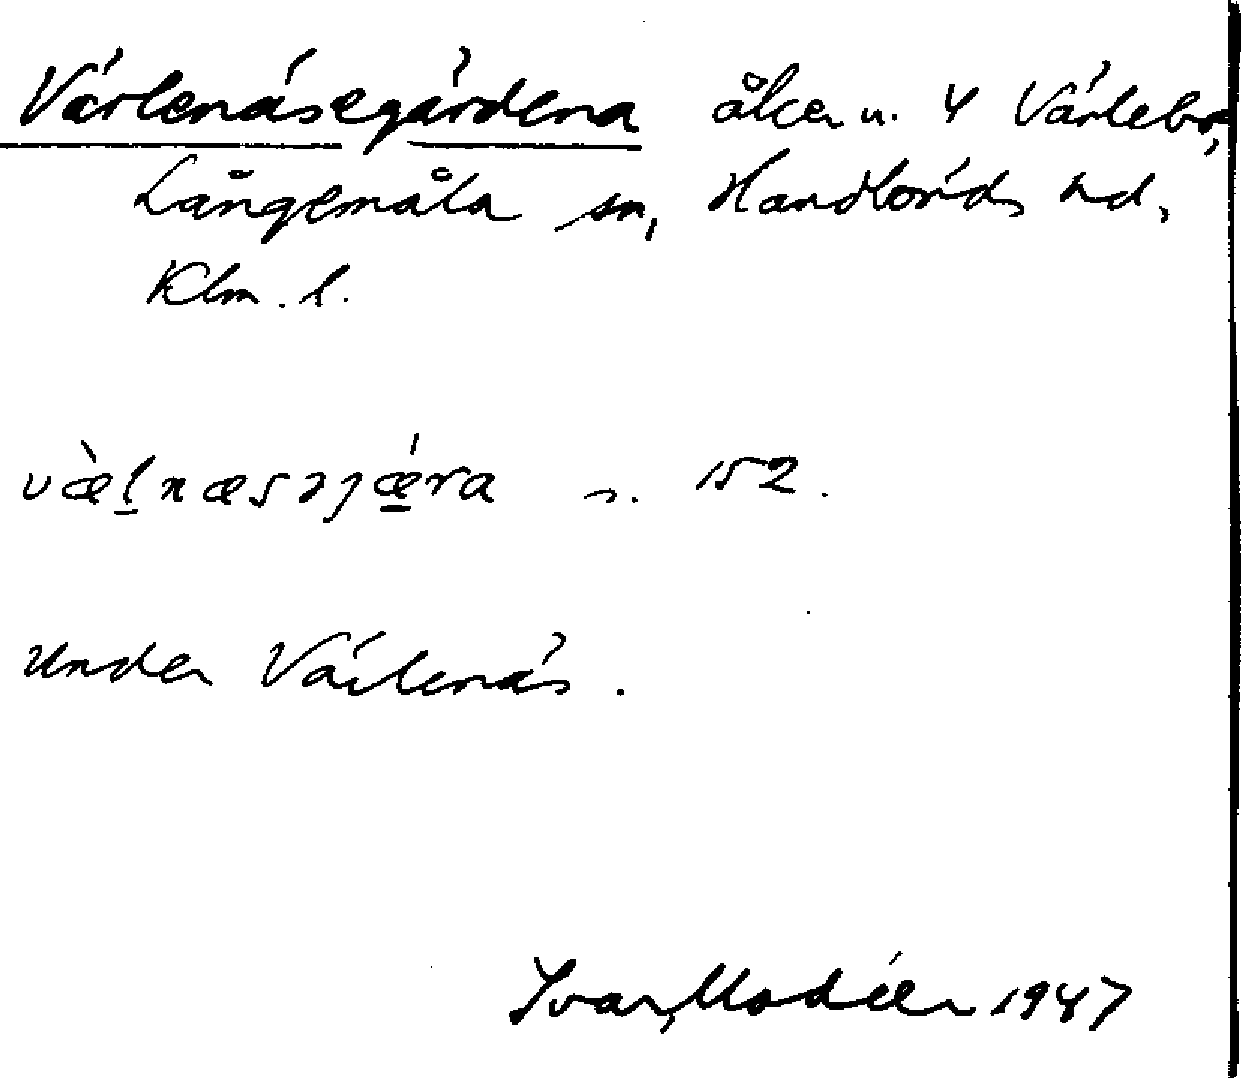 Värlenäsegärdena åker u. 4 Värlebo,
Långemåla sn, Handbörds hd,
Klm. l.
vàl̠næsəjǽ̠ra s. 152.
Under Värlenäs.
Ivar Modéer 1947